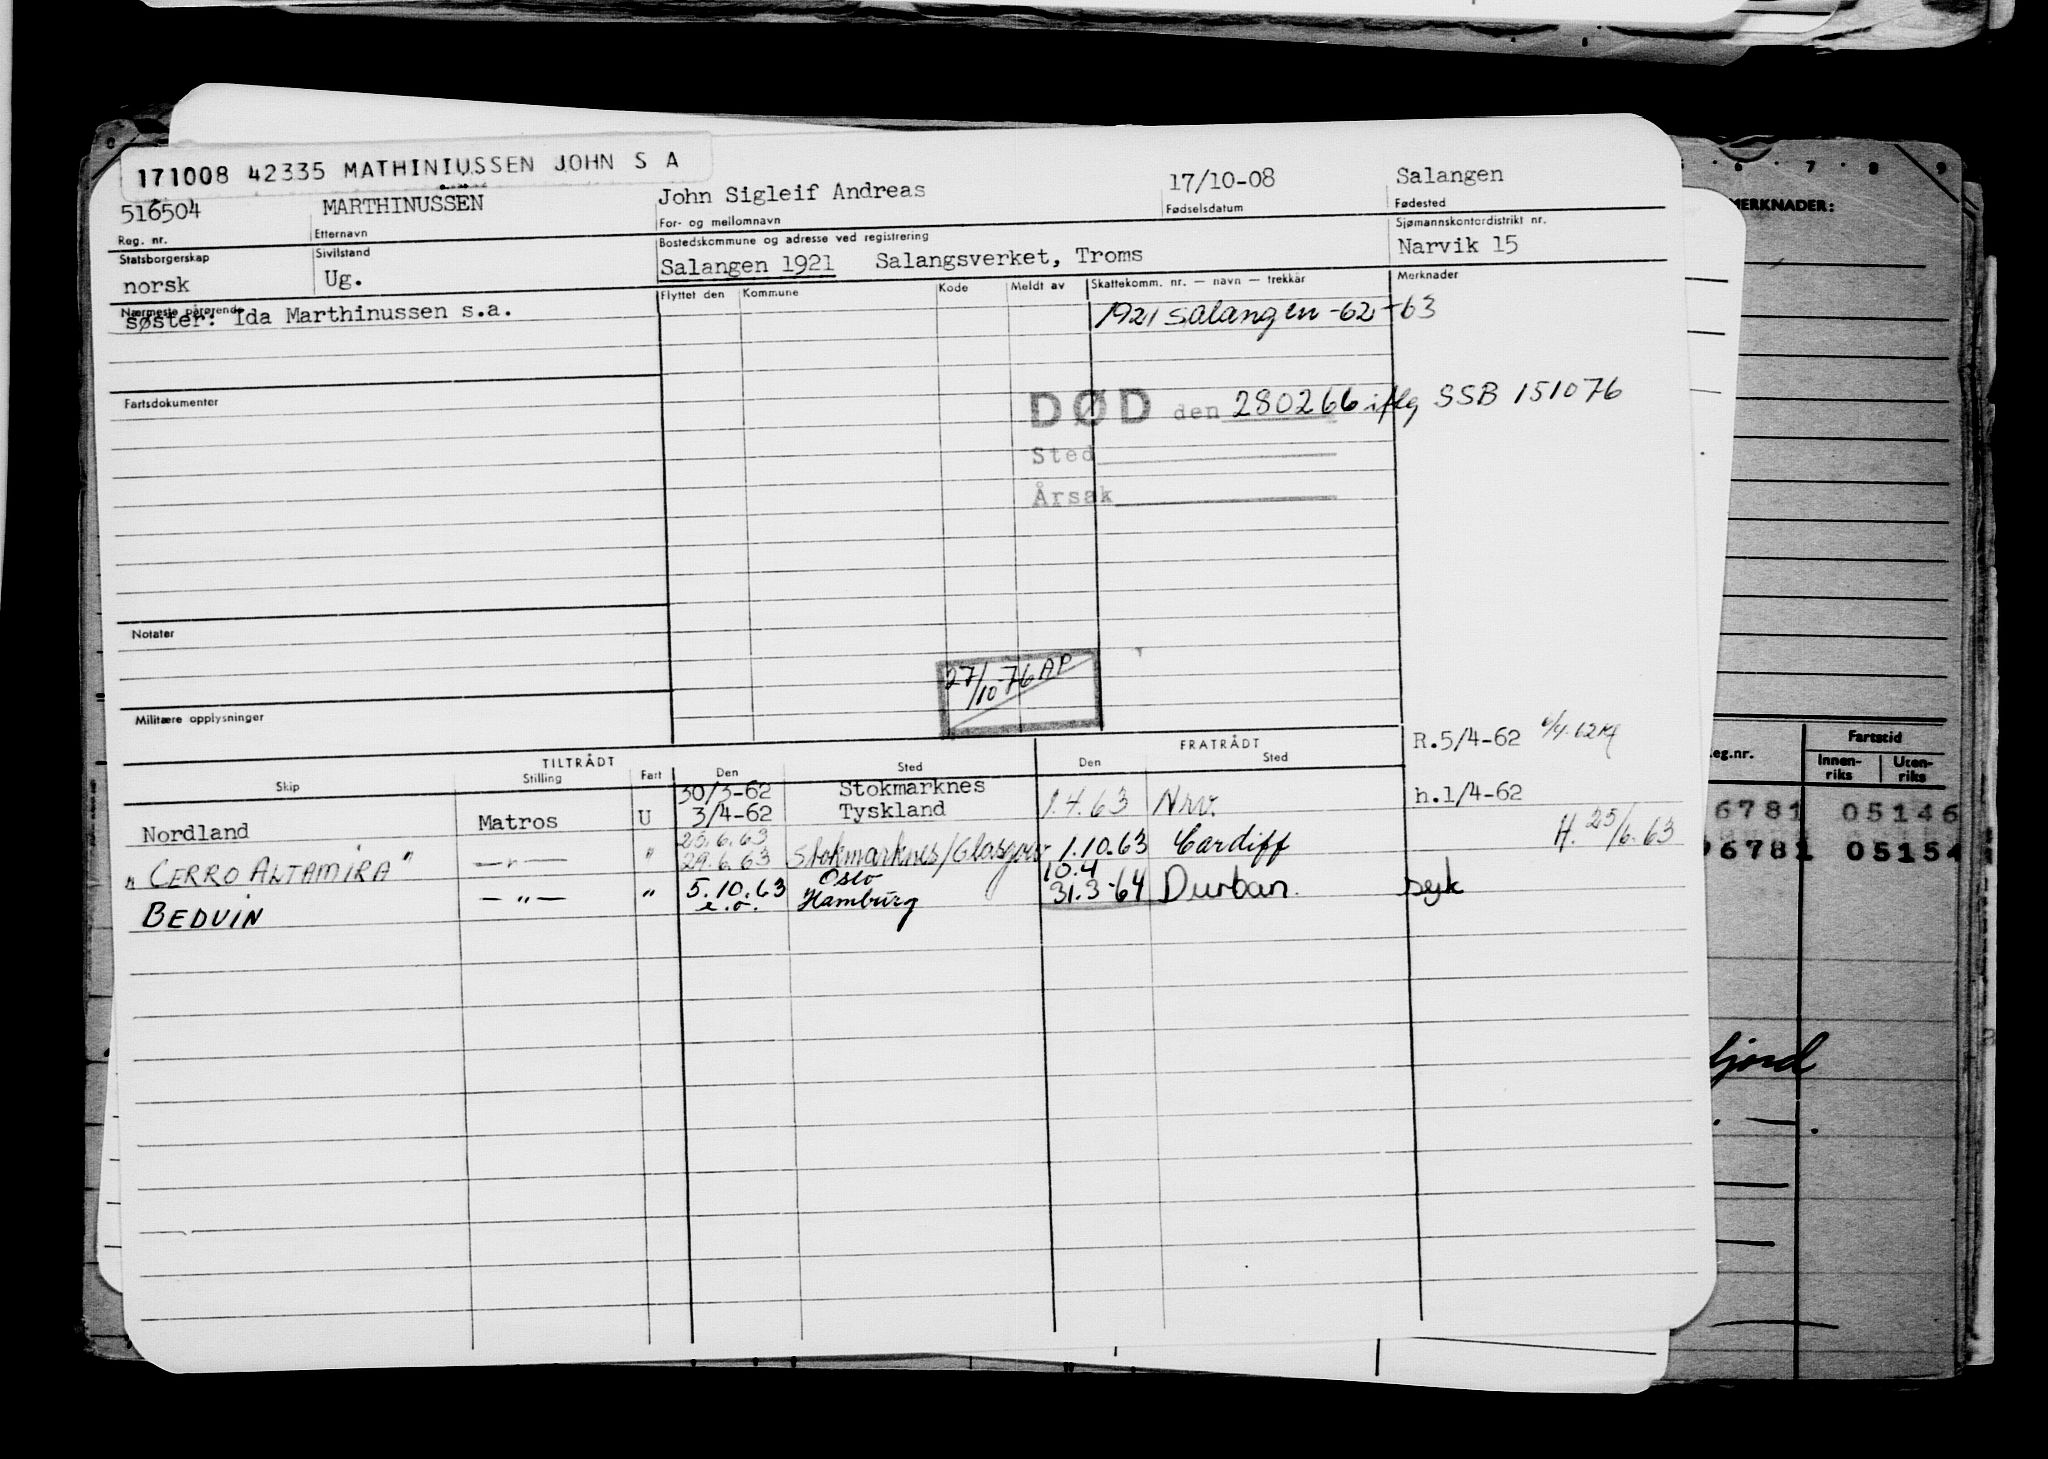 171008 42335 MATHINIUSSEN JOHN S A
516504 MARTHINUSSEN John Sigleif Andreas 17/10-08 Salangen
Reg. nr. Etternavn For- og mellomnavn Fødselsdatum Fødested
Statsborgerskap Sivilstand Bostedskommune og adresse ved registrering Sjømannskontordistrikt nr.
norsk Ug. Salangen 1921 Salangsverket, Troms Narvik 15
Nærmeste pårørende Flyttet den Kommune Kode Meldt av Skattekomm. nr. — navn — trekkår Merknader
søster: Ida Marthinussen s.a. 1921 Salangen -62-63
Fartsdokumenter
DØD den 280266 iflg SSB 151076
Sted
Årsak
Notater
27/10-76 AP
Militære opplysninger
TILTRÅDT FRATRÅDT R.5/4-62
Skip Stilling Fart Den Sted Den Sted
30/3-62 Stokmarknes h.1/4-62
Nordland Matros U 3/4-62 Tyskland 1.4.63 Nrv.
25.6.63 H. 25/6.63
"CERRO ALTAMIRA" —"— " 29.6.63 Stokmarknes/Glasgow 1.10.63 Cardiff
Oslo 10.4
BEDUIN —"— " 5.10.63 Hamburg 31.3-64 Durban. syk
e.o.
MERKNADER:
6 7 8 9
eg.nr. Fartstid
Innen-riks Uten-riks
6781 05146
96781 05154
fjord